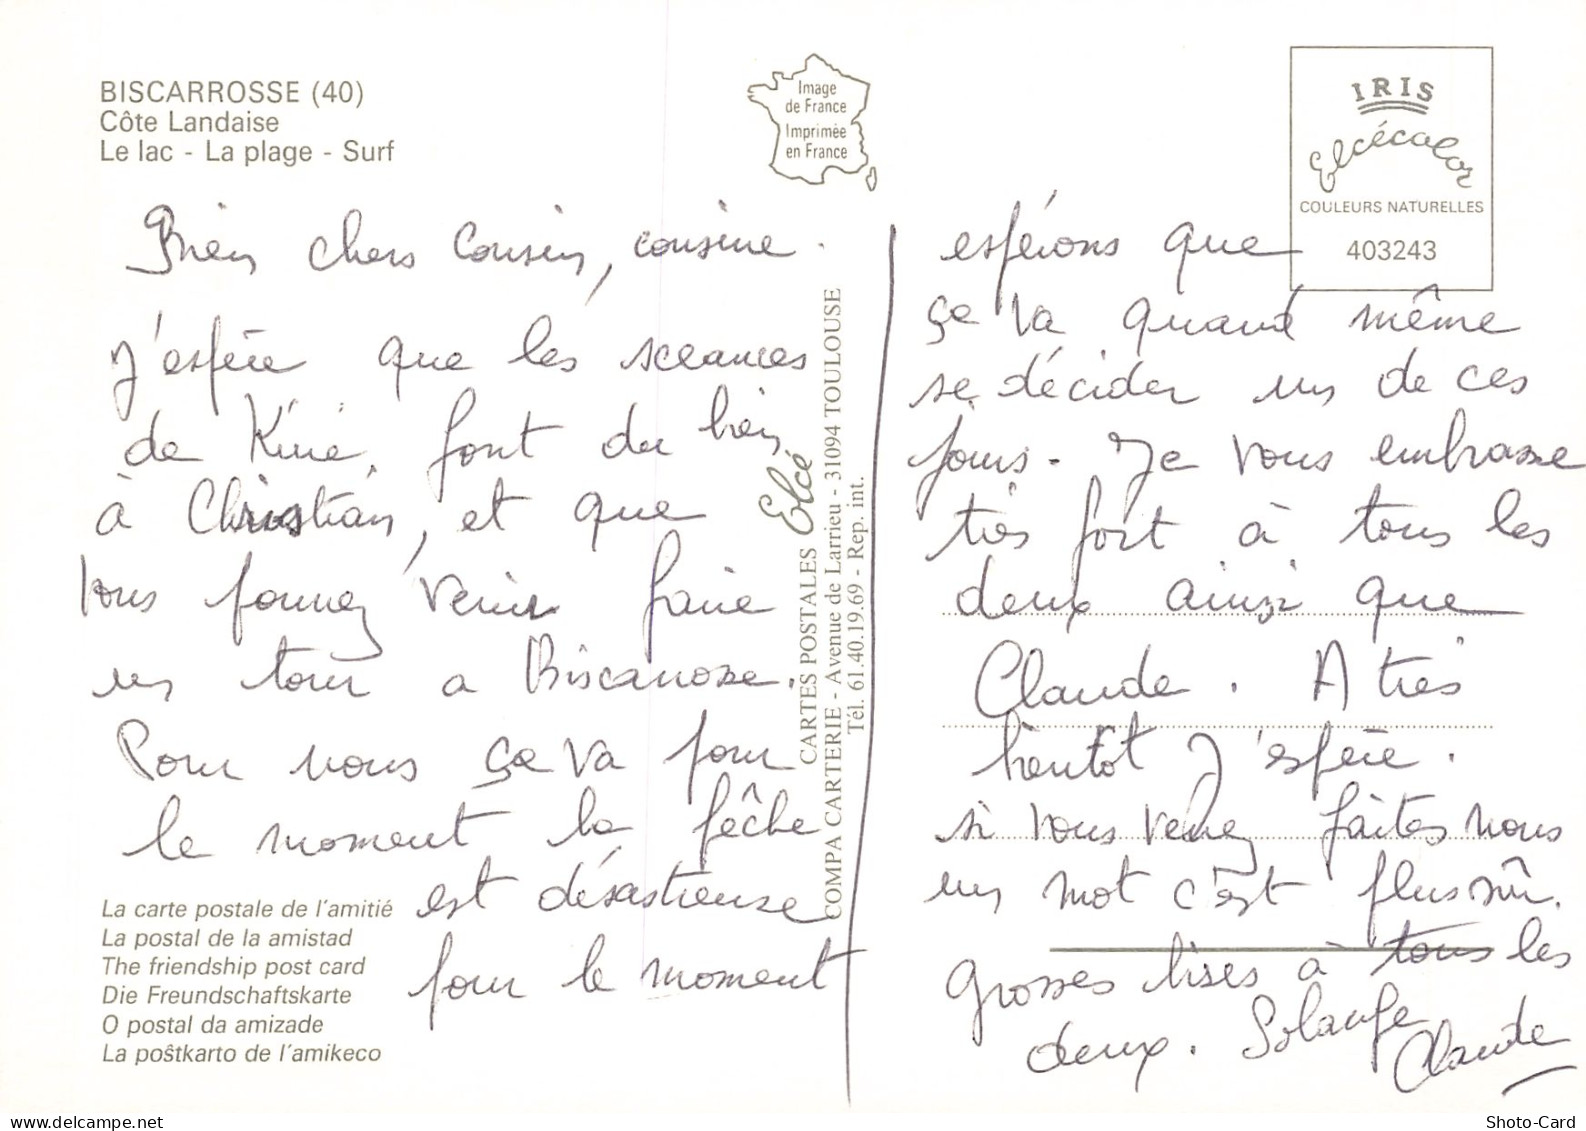 BISCARROSSE (40)
Côte Landaise
Le lac - La plage - Surf
Image
de France
Imprimée
en France
IRIS
Elcécolor
COULEURS NATURELLES
403243
Bien chers Cousin, cousine.
J'espère que les sceances
de Kiné, font du bien
à Christian, et que
vous pourrez venir faire
un tour a Biscarrosse.
Pour nous ça va pour
le moment la pêche
est désastreuse
pour le moment
CARTES POSTALES Elcé
COMPA CARTERIE - Avenue de Larrieu - 31094 TOULOUSE
Tél. 61.40.19.69 - Rep. int.
espérons que
ça va quand même
se décider un de ces
jours. Je vous embrasse
très fort à tous les
deux ainsi que
Claude. A très
bientôt J'espère.
si vous venez faites nous
un mot c'est plus sûr.
Grosses bises à tous les
deux. Solange
Claude
La carte postale de l'amitié
La postal de la amistad
The friendship post card
Die Freundschaftskarte
O postal da amizade
La poŝtkarto de l'amikeco
Shoto-Card